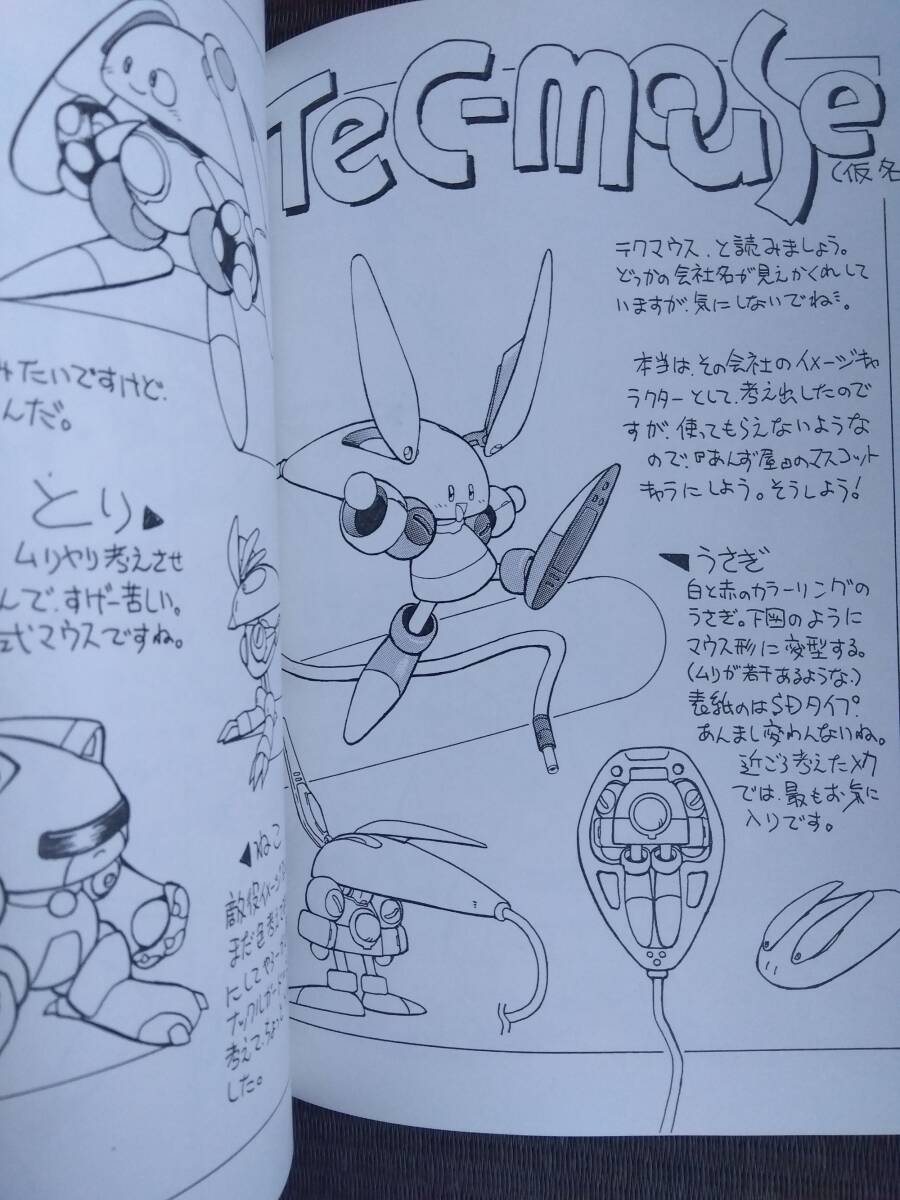 Tec-mouse
(仮名
テクマウス、と読みましょう。
どっかの会社名が見えかくれして
いますが、気にしないでね。
本当は、その会社のイメージキャ
ラクターとして、考え出したので
すが、使ってもらえないような
ので、『あんず屋』のマスコット
キャラにしよう。そうしよう!
◀うさぎ
白と赤のカラーリングの
うさぎ。下図のように
マウス形に変型する。
(ムリが若干あるような。)
表紙のはSDタイプ。
あんまし変わんないね。
近ごろ考えたメカ
では、最もお気に
入りです。
みたいですけど、
んだ。
とり▶
ムリヤリ考えさせ
んで、すげー苦しい。
式マウスですね。
◀ねこ
敵役イメージ
まだ色考え
にしてやろー
ナックルガード
考えて、ちょっ
した。